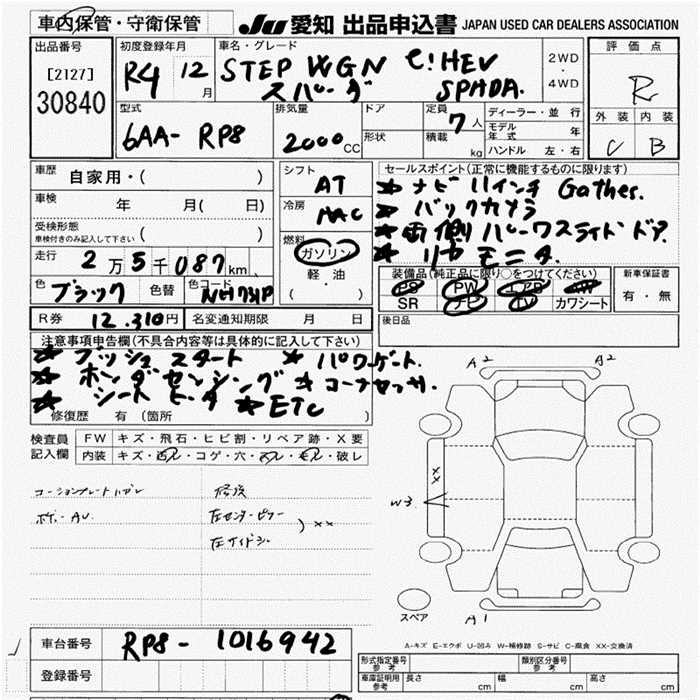 車内保管・守衛保管 JU 愛知 出品申込書 JAPAN USED CAR DEALERS ASSOCIATION
出品番号 初度登録年月 車名・グレード 評価点
[2127] R4 12月 STEP WGN e:HEV 2WD・4WD R
30840 スパーダ SPADA.
型式 排気量 ドア 定員 ディーラー・並行 外装 内装
6AA-RP8 2000CC 形状 7人 モデル年式 年 C B
積載 kg ハンドル 左・右
車歴 自家用・( ) シフト AT セールスポイント(正常に機能するものに限ります)
車検 年 月( 日) 冷房 AAC ★ナビ11インチ Gathers.
受検形態 ★バックカメラ
車検付きのみ記入して下さい ( ) 燃料 ★両側パワースライドドア
走行 2万5千087km ガソリン ★リヤモニター
軽油 装備品(純正品に限り○をつけてください) 新車保証書
色 ブラック 色コード NH731P ( ) PS PW AW 有・無
SR TV カワシート
R券 12,310円 名変通知期限 月 日 後日品
注意事項申告欄(不具合内容等は具体的に記入して下さい)
★プッシュスタート ★パワーゲート.
★ホンダセンシング ★コーナーセンサー.
★シートヒーター ★ETC
修復歴 有 (箇所 )
検査員 FW キズ・飛石・ヒビ割・リペア跡・X要
記入欄 内装 キズ・汚レ・コゲ・穴・モレ・破レ
コーションプレートハガレ 修復
左センターピラー ××
左サイドシル
A2 A2
×× W3
スペア A1
A-キズ E-エクボ U-凹み W-補修跡 S-サビ C-腐食 XX-交換済
車台番号 RP8-1016942
登録番号
形式指定番号 参考 類別区分番号 参考
車庫証明用 参考 長さ cm 幅 cm 高さ cm